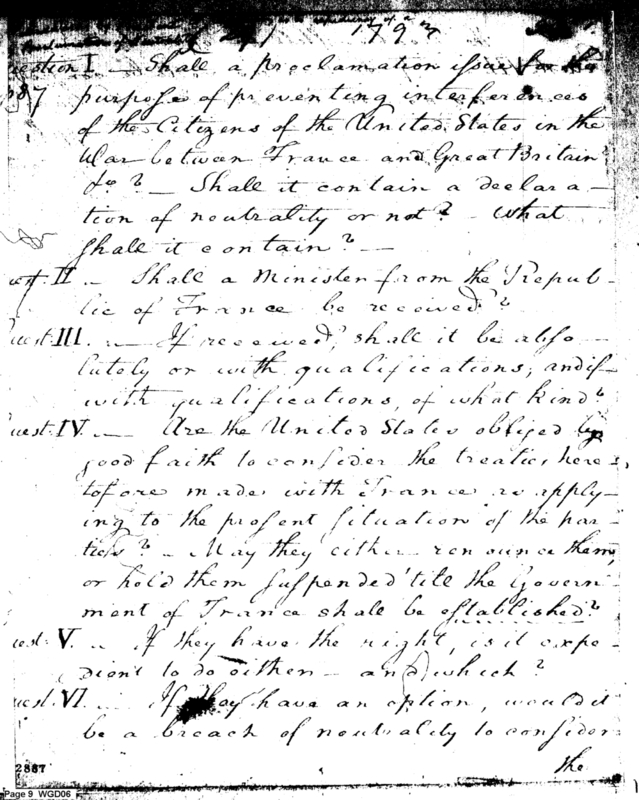 1793
Question I. — Shall a proclamation issue for the
purpose of preventing interferences
of the Citizens of the United States in the
War between France and Great Britain
&c? — Shall it contain a declara-
tion of neutrality or not? What
shall it contain? —
Quest. II. — Shall a Minister from the Repub-
lic of France be received?
Quest. III. — If received, shall it be abso-
lutely or with qualifications; and if
with qualifications, of what kind?
Quest. IV. — Are the United States obliged by
good faith to consider the treaties here-
tofore made with France as apply-
ing to the present situation of the par-
ties? — May they either renounce them,
or hold them suspended 'till the Govern-
ment of France shall be established?
Quest. V. — If they have the right, is it expe-
dient to do either — and which?
Quest. VI. — If they have an option, would it
be a breach of neutrality to consider
the
2887
Page 9 WGD06